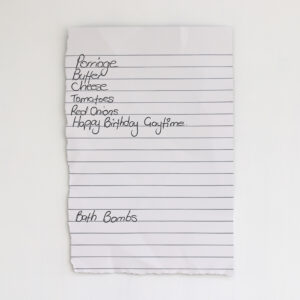 Porriage
Butter
Cheese
Tomatoes
Red Onions
Happy Birthday Gaytime
Bath Bombs